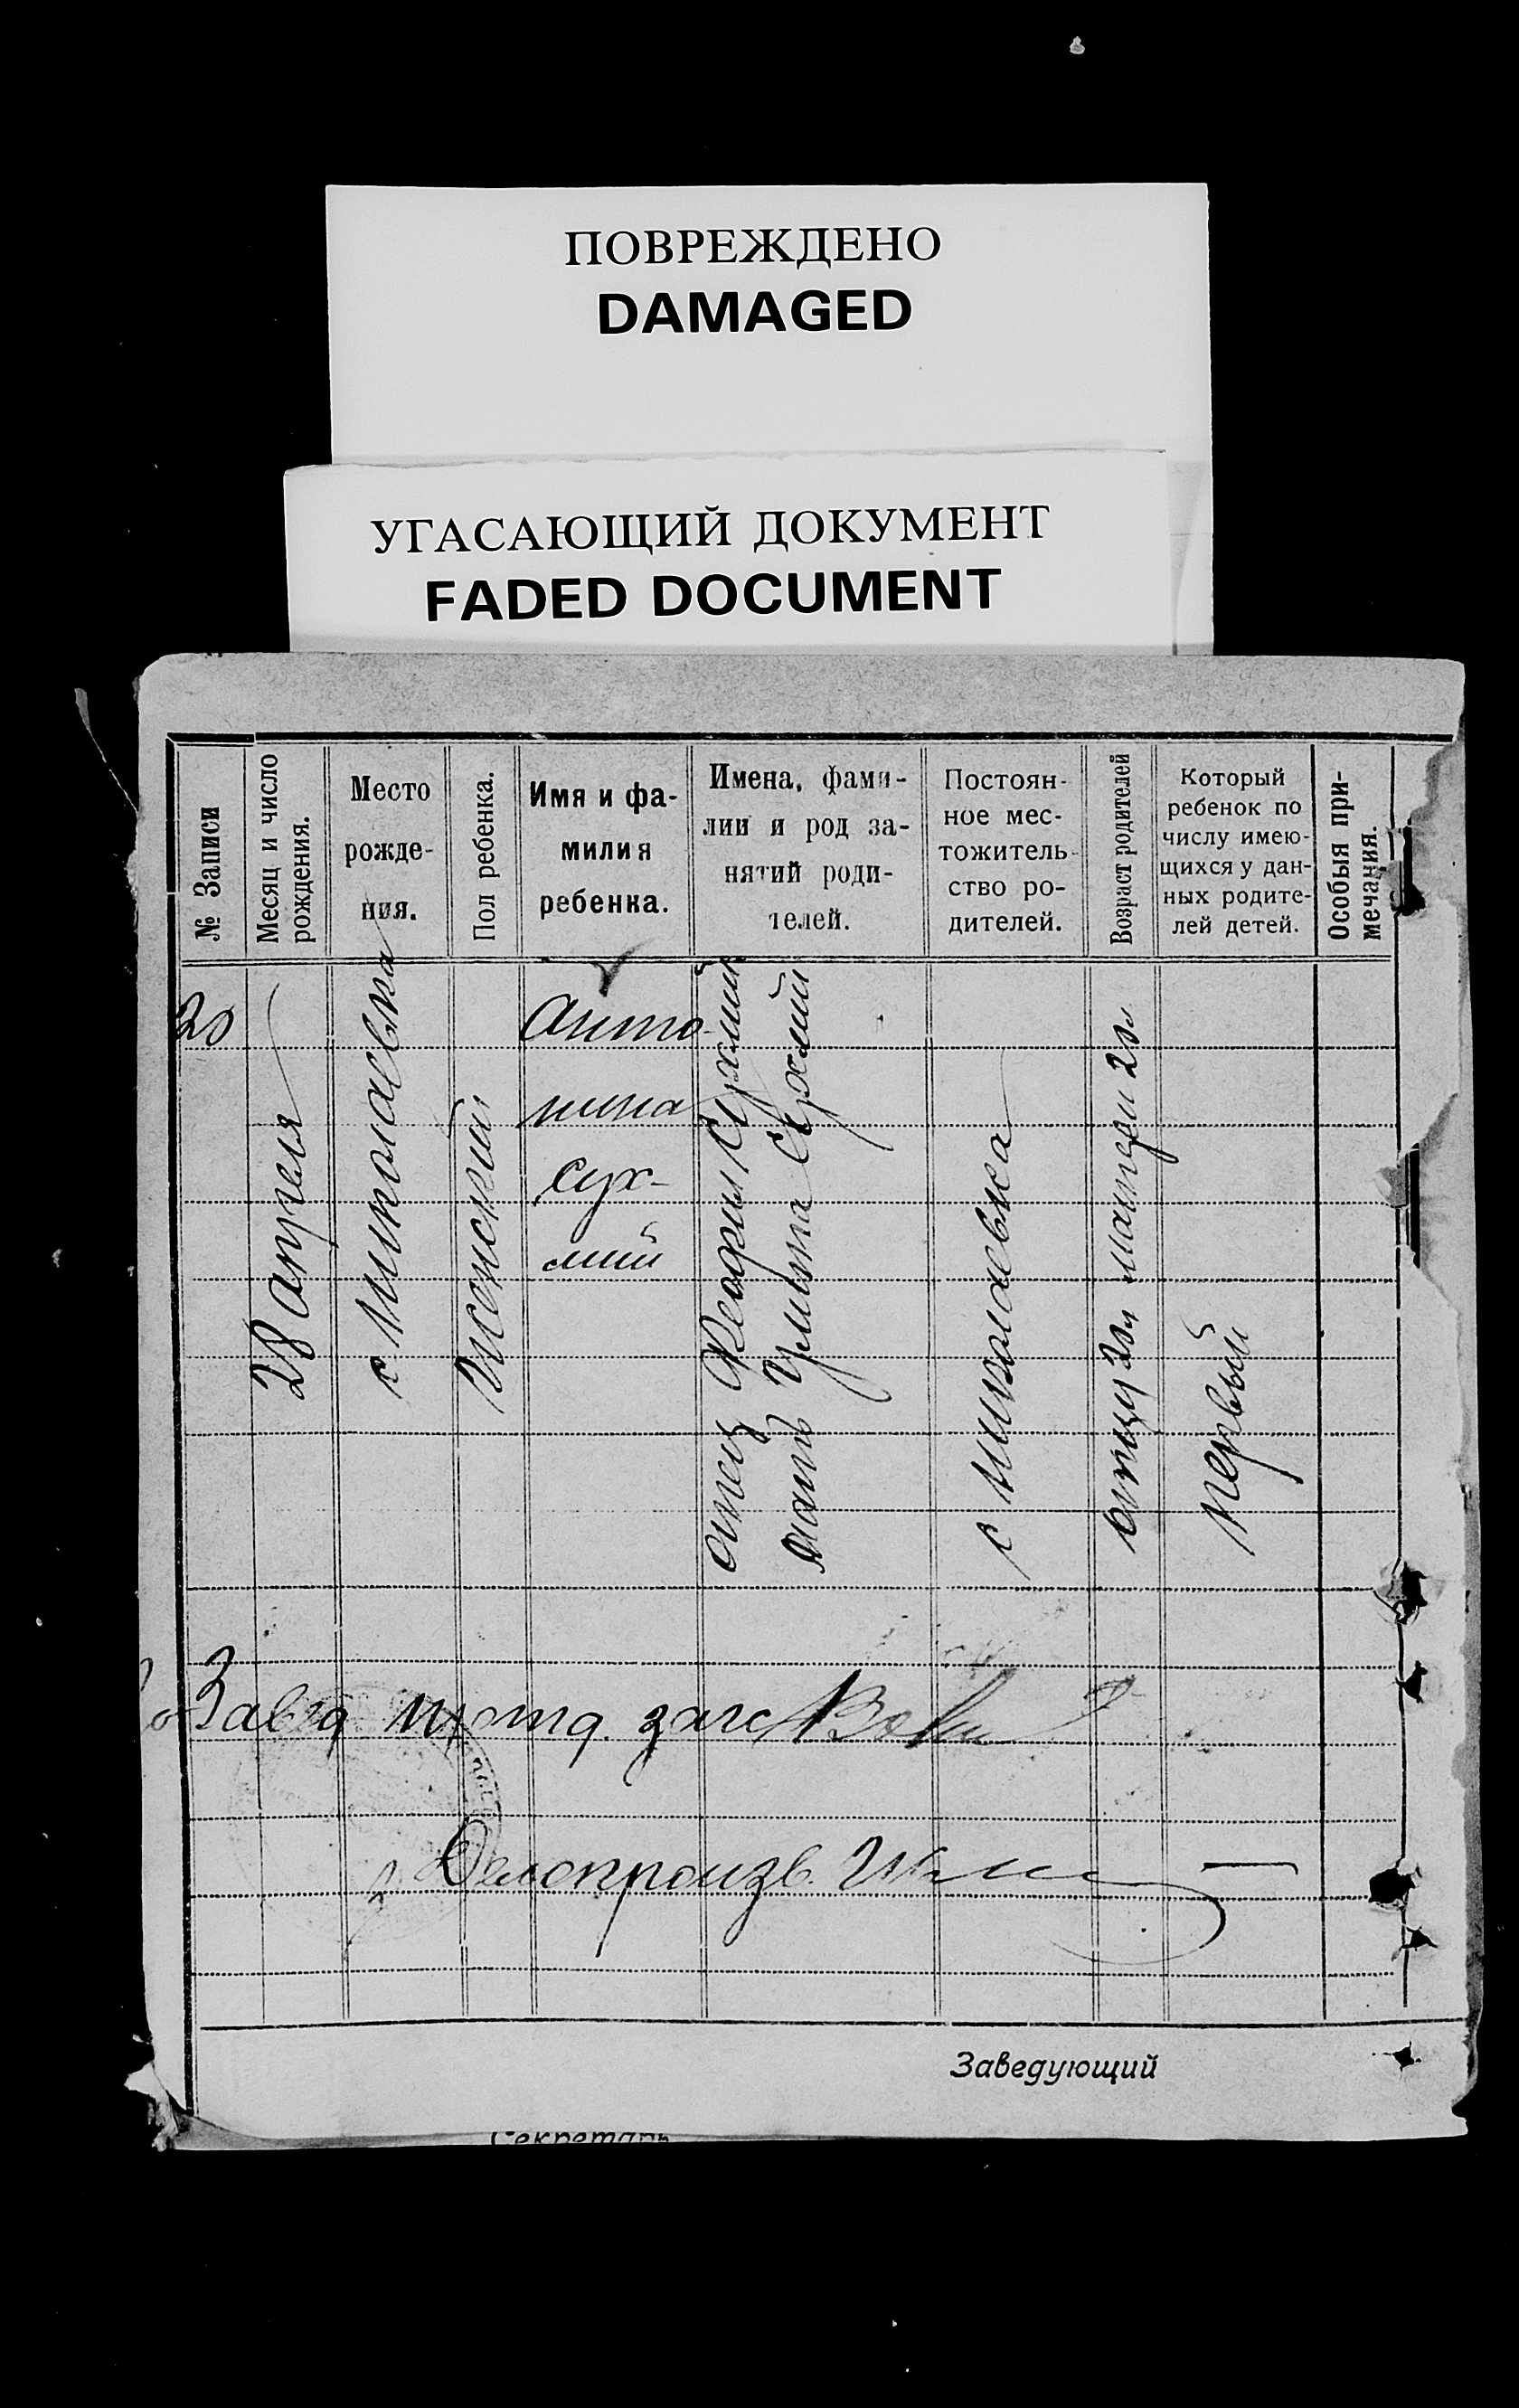 ПОВРЕЖДЕНО
DAMAGED
УГАСАЮЩИЙ ДОКУМЕНТ
FADED DOCUMENT
№ Записи
Месяц и число
рождения.
Место
рожде-
ния.
Пол ребенка.
Имя и фа-
милия
ребенка.
Имена, фами-
лии и род за-
нятий роди-
телей.
Постоян-
ное мес-
тожитель-
ство ро-
дителей.
Возраст родителей
Который
ребенок по
числу имею-
щихся у дан-
ных родите-
лей детей.
Особыя при-
мечания.
20
28 апреля
с Николаевка
Женский
Анто-
нина
Сух-
лий
отец Феофил Сухлий
мать Сухлий
с Николаевка
отцу 20л матери 20л
первый
Завед загс
Делопроизв.
Заведующий
Секретарь